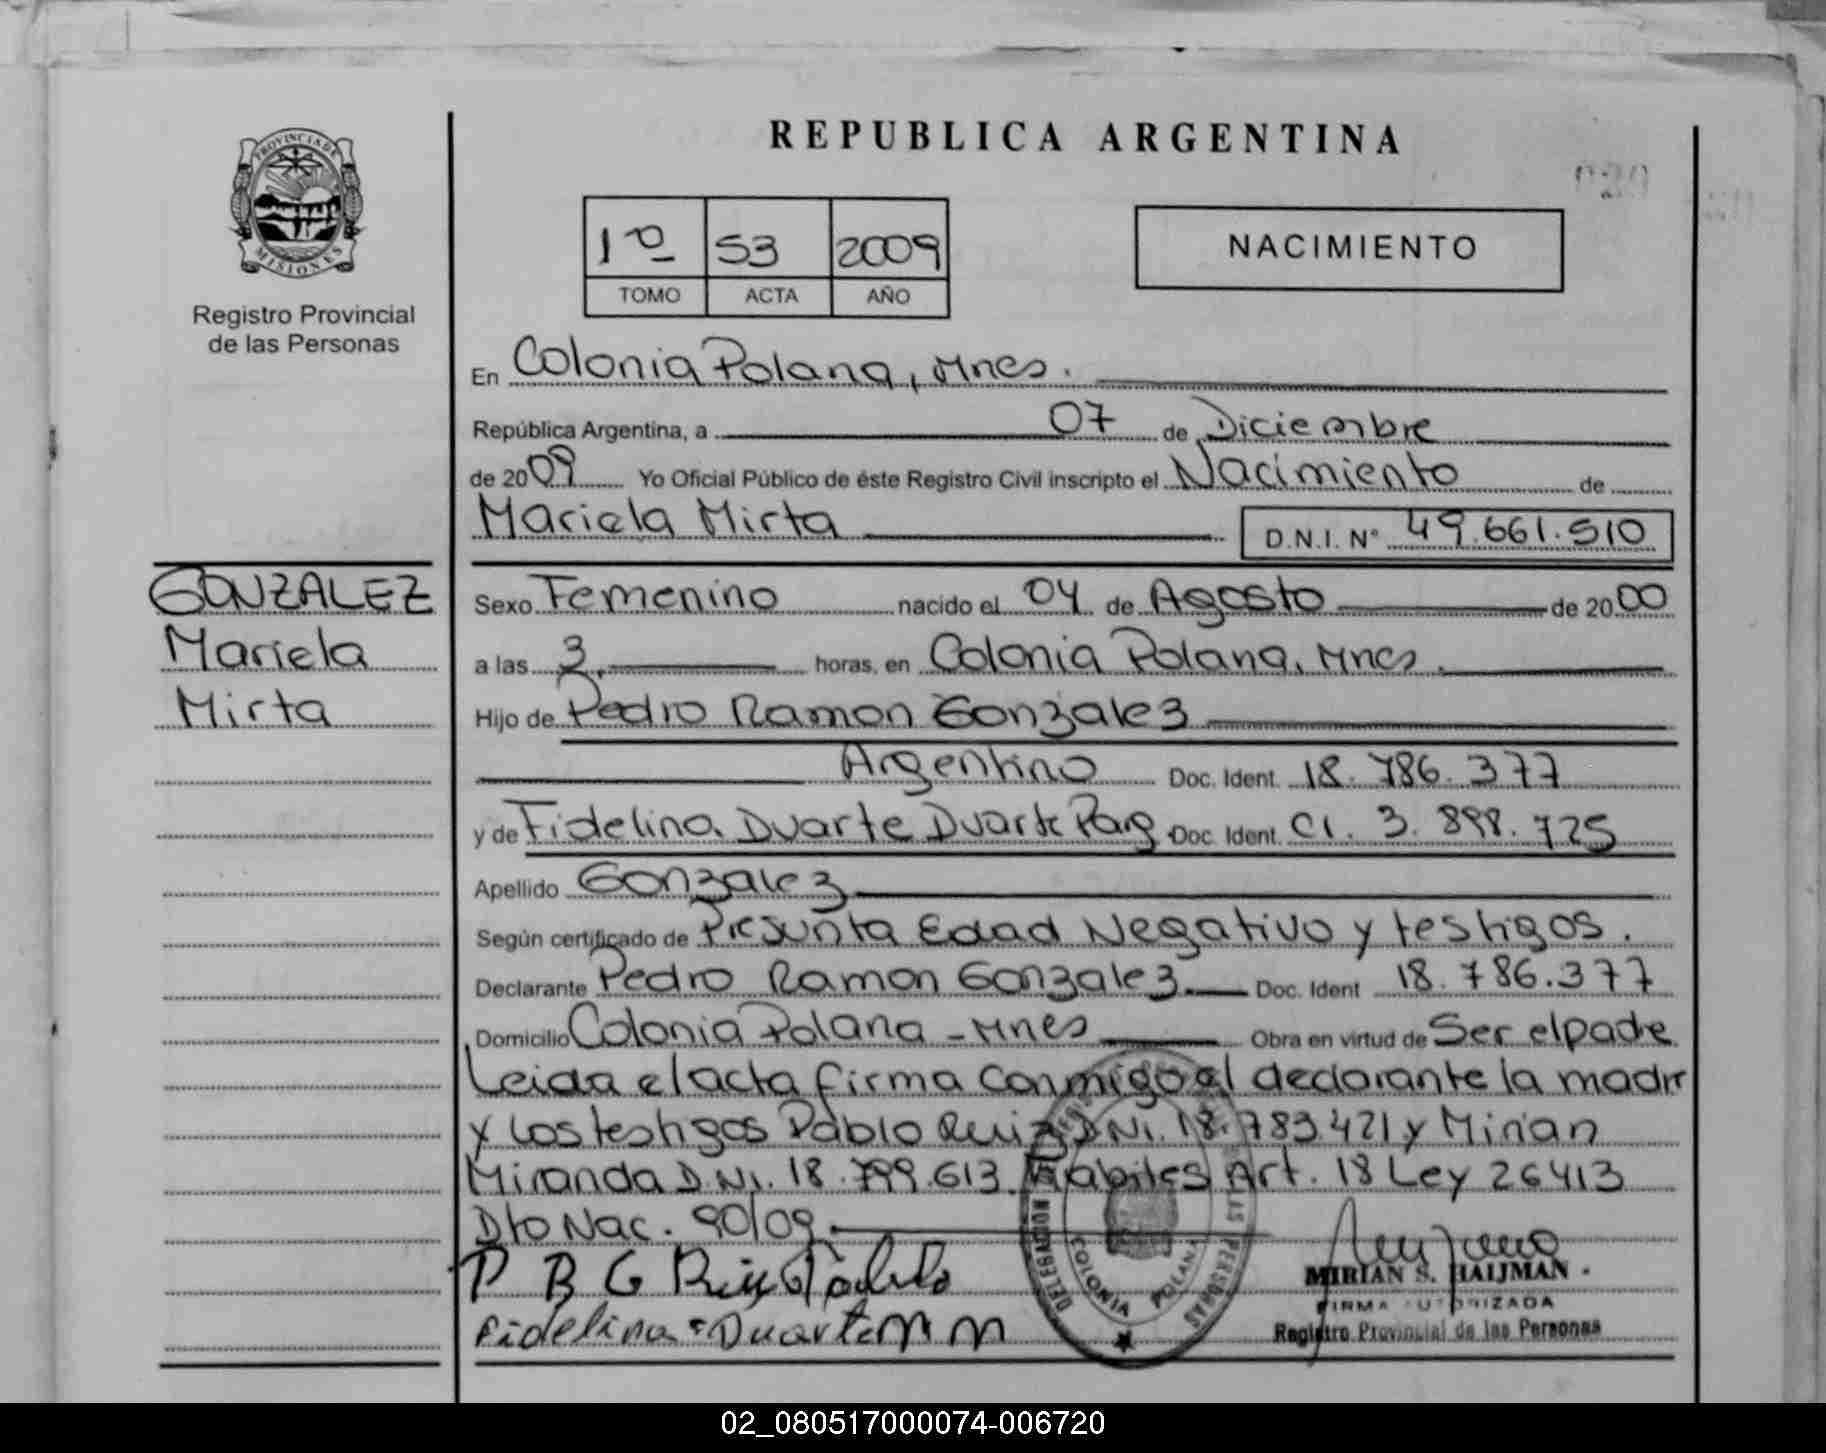 REPUBLICA ARGENTINA
PROVINCIA DE MISIONES
Registro Provincial
de las Personas
1º 53 2009
TOMO ACTA AÑO
NACIMIENTO
En Colonia Polana, Mnes.
República Argentina, a 07 de Diciembre
de 2009 Yo Oficial Público de éste Registro Civil inscripto el Nacimiento de
Mariela Mirta D.N.I. Nº 49.661.510
GONZALEZ
Mariela
Mirta
Sexo Femenino nacido el 04 de Agosto de 2000
a las 3. horas, en Colonia Polana, Mnes.
Hijo de Pedro Ramon Gonzalez
Argentino Doc. Ident. 18.786.377
y de Fidelina Duarte Duarte Parg Doc. Ident. CI. 3.898.725
Apellido Gonzalez
Según certificado de Presunta Edad Negativo y testigos.
Declarante Pedro Ramon Gonzalez Doc. Ident 18.786.377
Domicilio Colonia Polana - Mnes Obra en virtud de Ser el padre
Leida el acta firma conmigo el declarante la madre
y los testigos Pablo Ruiz D.Ni. 18.783421 y Mirian
Miranda D.Ni. 18.799.613 Habiles Art. 18 Ley 26413
Dto Nac. 90/09.
P R G Ruiz Pablo
fidelina Duarte M M
DELEGACION
COLONIA POLANA
DE LAS PERSONAS
MIRIAN S. HAIJMAN
FIRMA AUTORIZADA
Registro Provincial de las Personas
02_080517000074-006720